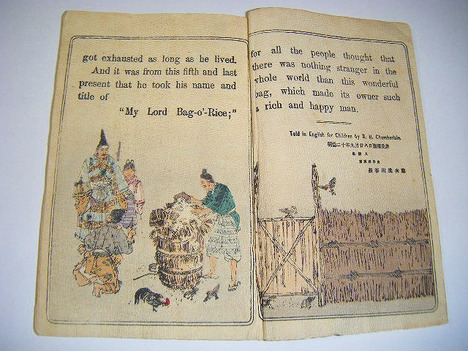 got exhausted as long as he lived.
And it was from this fifth and last
present that he took his name and
title of
"My Lord Bag-o'-Rice;"
for all the people thought that
there was nothing stranger in the
whole world than this wonderful
bag, which made its owner such
a rich and happy man.
Told in English for Children by B. H. Chamberlain.
明治二十年